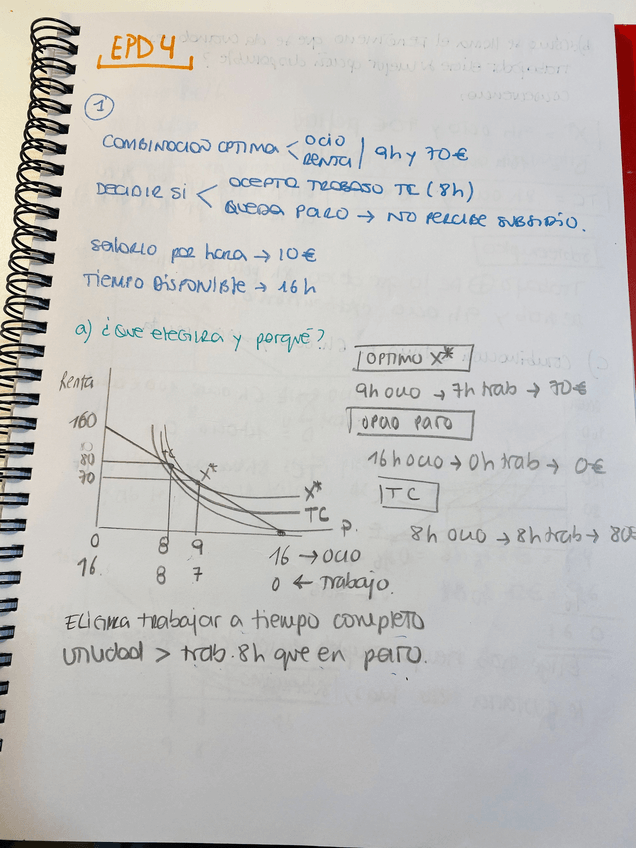 EPD 4
1
COMBINACION OPTIMA < OCIO
RENTA | 9h y 70€
DECIDIR SI < ACEPTA TRABAJO TC (8h)
QUEDA PARO → NO PERCIBE SUBSIDIO.
SALARIO por hora → 10€
TIEMPO DISPONIBLE → 16h
a) ¿Que elegira y porqué?
OPTIMO X*
9h ocio → 7h trab → 70€
OPCIO PARO
16h ocio → 0h trab → 0€
TC
8h ocio → 8h trab → 80€
Renta
160
80
70
TC
X*
X*
TC
P.
0 8 9 16 → ocio
16. 8 7 0 ← Trabajo.
Eligira trabajar a tiempo completo
utilidad > trab. 8h que en paro.